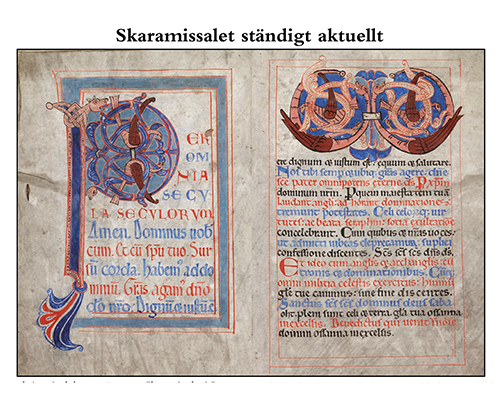 Skaramissalet ständigt aktuellt
P ER
OM
NIA
SECV
LA SECVLORVM
Amen. Dominus uob
cum. Et cū spū tuo. Sur
sū corda. habem ad do
minū. Grās agam dño
dō nro. Dignū & iustū ē.
ere dignum & iustum est. equum & salutare.
Nos tibi semp & ubiq; grās agere. dñe
sce pater omnipotens eterne ds. P xpm
dominum nrm. P quem maiestatem tuā
laudant angli. adorant dominationes.
tremunt potestates. Celi celorumq; uir
tutes. ac beata seraphim. socia exultatione
concelebrant. Cum quibus & nrās uoces.
ut admitti iubeas deprecamur. supplici
confessione dicentes. Sc̄s sc̄s sc̄s dn̄s ds.
Et ideo cum anglis & archanglis. cum
tronis & dominationibus. Cūq;
omni militia celestis exercitus. hymnū
glē tue canimus. sine fine dicentes.
Sanctus sc̄s sc̄s dominus deus saba
oth. pleni sunt celi & terra. glā tua osanna
in excelsis. Benedictus qui uenit in noīe
domini osanna in excelsis.